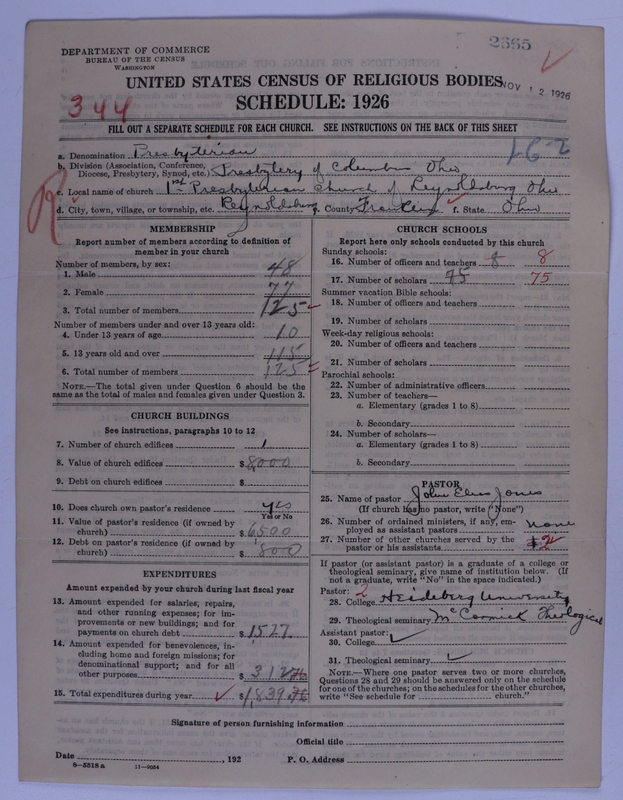 DEPARTMENT OF COMMERCE
BUREAU OF THE CENSUS
WASHINGTON
2565
UNITED STATES CENSUS OF RELIGIOUS BODIES
NOV 12 1926
344
SCHEDULE: 1926
FILL OUT A SEPARATE SCHEDULE FOR EACH CHURCH. SEE INSTRUCTIONS ON THE BACK OF THIS SHEET
a. Denomination Presbyterian
b. Division (Association, Conference, Diocese, Presbytery, Synod, etc.) Presbytery of Columbus Ohio
c. Local name of church 1st Presbyterian Church of Reynoldsburg Ohio
d. City, town, village, or township, etc. Reynoldsburg e. County Franklin f. State Ohio
MEMBERSHIP
Report number of members according to definition of
member in your church
Number of members, by sex:
1. Male 48
2. Female 77
3. Total number of members 125
Number of members under and over 13 years old:
4. Under 13 years of age 10
5. 13 years old and over 115
6. Total number of members 125
NOTE.—The total given under Question 6 should be the
same as the total of males and females given under Question 3.
CHURCH BUILDINGS
See instructions, paragraphs 10 to 12
7. Number of church edifices 1
8. Value of church edifices $ 8,000
9. Debt on church edifices $
10. Does church own pastor's residence yes
Yes or No
11. Value of pastor's residence (if owned by
church) $ 6500
12. Debt on pastor's residence (if owned by
church) $ 800
EXPENDITURES
Amount expended by your church during last fiscal year
13. Amount expended for salaries, repairs,
and other running expenses; for im-
provements or new buildings; and for
payments on church debt $ 1527.
14. Amount expended for benevolences, in-
cluding home and foreign missions; for
denominational support; and for all
other purposes $ 312.76
15. Total expenditures during year $ 1,839.76
CHURCH SCHOOLS
Report here only schools conducted by this church
Sunday schools:
16. Number of officers and teachers 8 8
17. Number of scholars 75 75
Summer vacation Bible schools:
18. Number of officers and teachers
19. Number of scholars
Week-day religious schools:
20. Number of officers and teachers
21. Number of scholars
Parochial schools:
22. Number of administrative officers
23. Number of teachers—
a. Elementary (grades 1 to 8)
b. Secondary
24. Number of scholars—
a. Elementary (grades 1 to 8)
b. Secondary
PASTOR
25. Name of pastor John Elias Jones
(If church has no pastor, write "None")
26. Number of ordained ministers, if any, em-
ployed as assistant pastors none
27. Number of other churches served by the
pastor or his assistants 2
If pastor (or assistant pastor) is a graduate of a college or
theological seminary, give name of institution below. (If
not a graduate, write "No" in the space indicated.)
Pastor: 2
28. College Heideberg University
29. Theological seminary McCormick Theological
Assistant pastor:
30. College
31. Theological seminary
NOTE.—Where one pastor serves two or more churches,
Questions 28 and 29 should be answered only on the schedule
for one of the churches; on the schedules for the other churches,
write "See schedule for church."
Signature of person furnishing information
Official title
Date , 192 P. O. Address
8—5518 a 11—9034